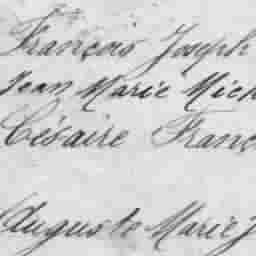 François Joseph
Jean Marie Mich
Césaire Franç
Auguste Marie J